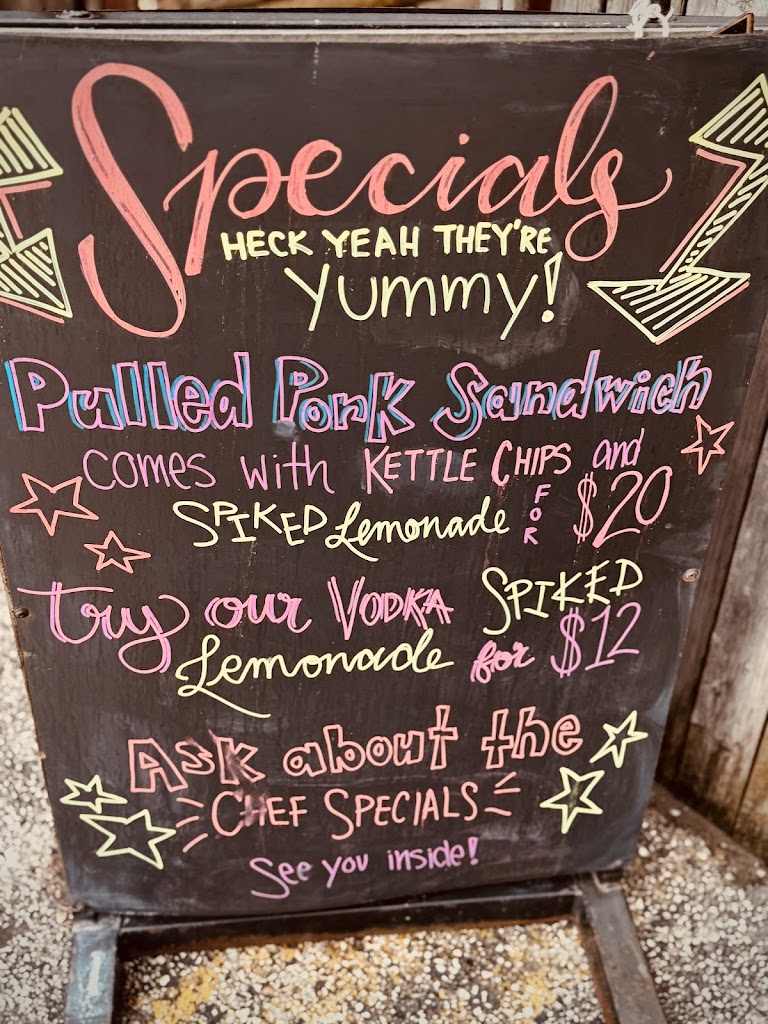 Specials
HECK YEAH THEY'RE
Yummy!
Pulled Pork Sandwich
comes with KETTLE CHIPS and
SPIKED Lemonade FOR $20
try our VODKA SPIKED
Lemonade for $12
Ask about the
CHEF SPECIALS
See you inside!